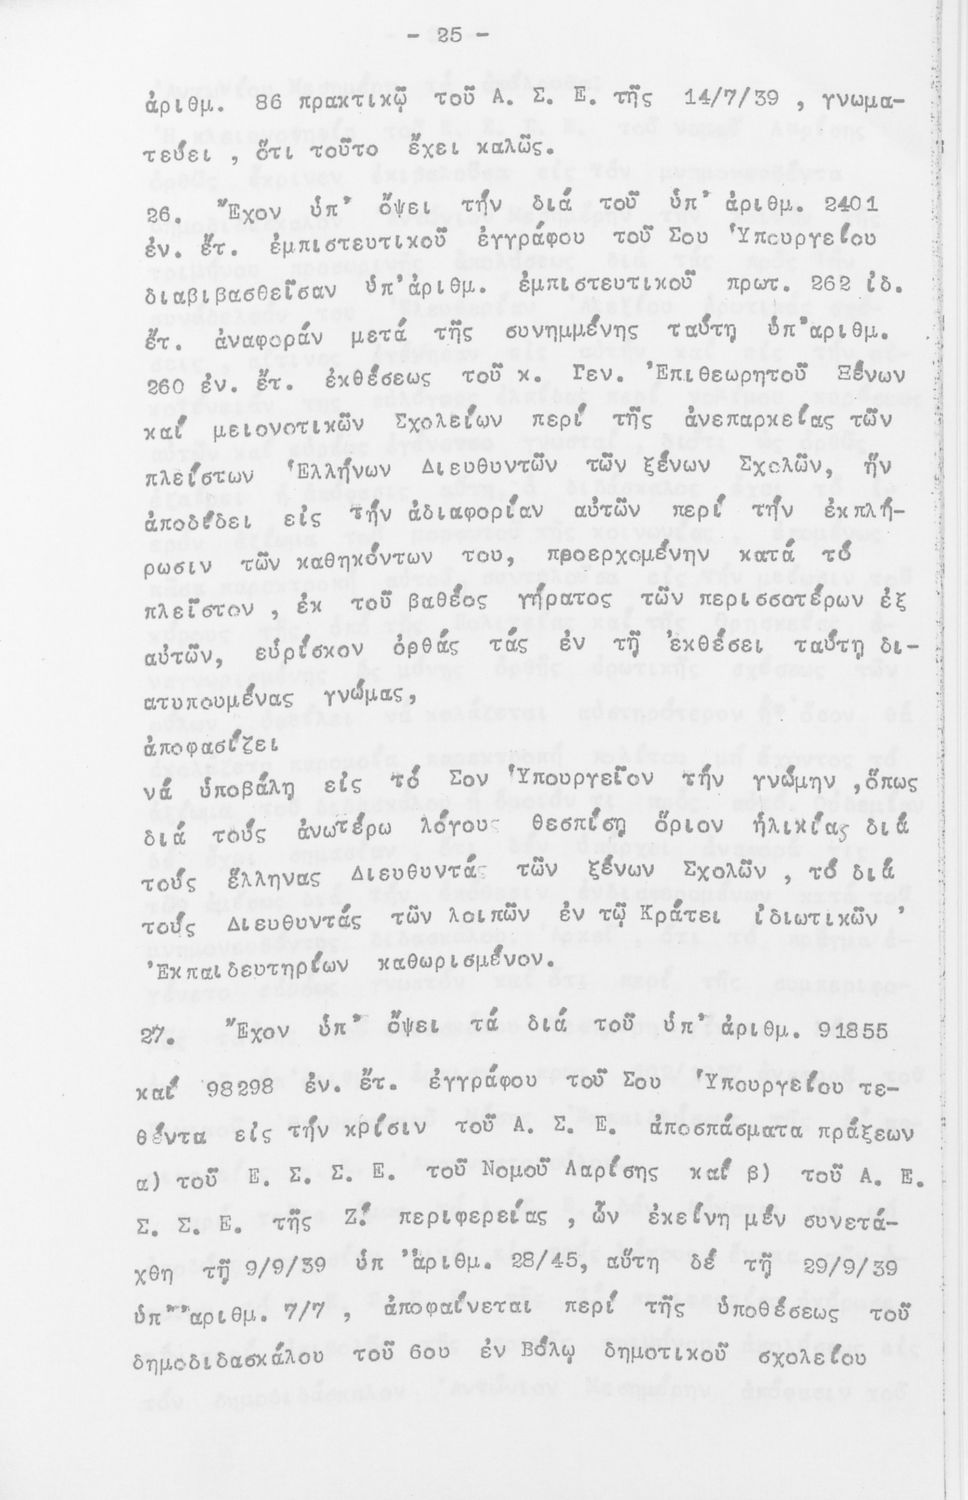 - 25 -
ἀριθμ. 86 πρακτικῷ τοῦ Α. Σ. Ε. τῆς 14/7/39 , γνωμα-
τεύει , ὅτι τοῦτο ἔχει καλῶς.
26. Ἔχον ὑπ' ὄψει τήν διά τοῦ ὑπ' ἀριθμ. 2401
ἐν. ἔτ. ἐμπιστευτικοῦ ἐγγράφου τοῦ Σου Ὑπουργείου
διαβιβασθεῖσαν ὑπ'ἀριθμ. ἐμπιστευτικοῦ πρωτ. 262 ἰδ.
ἔτ. ἀναφοράν μετά τῆς συνημμένης ταύτῃ ὑπ'αριθμ.
260 ἐν. ἔτ. ἐκθέσεως τοῦ κ. Γεν. Ἐπιθεωρητοῦ Ξένων
καί μειονοτικῶν Σχολείων περί τῆς ἀνεπαρκείας τῶν
πλείστων Ἑλλήνων Διευθυντῶν τῶν ξένων Σχολῶν, ἥν
ἀποδίδει εἰς τήν ἀδιαφορίαν αὐτῶν περί τήν ἐκπλή-
ρωσιν τῶν καθηκόντων του, προερχομένην κατά τό
πλεῖστον , ἐκ τοῦ βαθέος γήρατος τῶν περισσοτέρων ἐξ
αὐτῶν, εὑρίσκον ὀρθάς τάς ἐν τῇ ἐκθέσει ταύτῃ δι-
ατυπουμένας γνώμας,
ἀποφασίζει
νά ὑποβάλῃ εἰς τό Σον Ὑπουργεῖον τήν γνώμην ,ὅπως
διά τούς ἀνωτέρω λόγους θεσπίσῃ ὅριον ἡλικίας διά
τούς ἕλληνας Διευθυντάς τῶν ξένων Σχολῶν , τό διά
τούς Διευθυντάς τῶν λοιπῶν ἐν τῷ Κράτει ἰδιωτικῶν '
Ἐκπαιδευτηρίων καθωρισμένον.
27. Ἔχον ὑπ' ὄψει τά διά τοῦ ὑπ' ἀριθμ. 91855
καί 98298 ἐν. ἔτ. ἐγγράφου τοῦ Σου Ὑπουργείου τε-
θέντα εἰς τήν κρίσιν τοῦ Α. Σ. Ε. ἀποσπάσματα πράξεων
α) τοῦ Ε. Σ. Σ. Ε. τοῦ Νομοῦ Λαρίσης καί β) τοῦ Α. Ε.
Σ. Σ. Ε. τῆς Ζ! περιφερείας , ὧν ἐκείνη μέν συνετά-
χθη τῇ 9/9/39 ὑπ 'ἀριθμ. 28/45, αὕτη δέ τῇ 29/9/39
ὑπ''αριθμ. 7/7 , ἀποφαίνεται περί τῆς ὑποθέσεως τοῦ
δημοδιδασκάλου τοῦ 6ου ἐν Βόλῳ δημοτικοῦ σχολείου